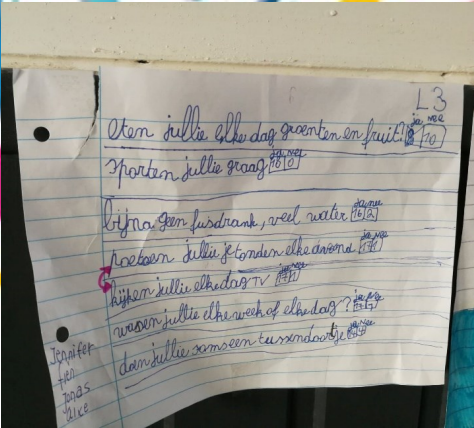 L3
ja nee
eten jullie elke dag groenten en fruit? 8 10
ja nee
sporten jullie graag 18 0
ja nee
bijna geen frisdrank, veel water 16 2
ja nee
poetsen jullie je tanden elke avond
ja nee
kijken jullie elke dag TV
ja nee
wassen jullie elke week of elke dag?
ja nee
doen jullie soms een tussendoortje
Jennifer
Fien
Jonas